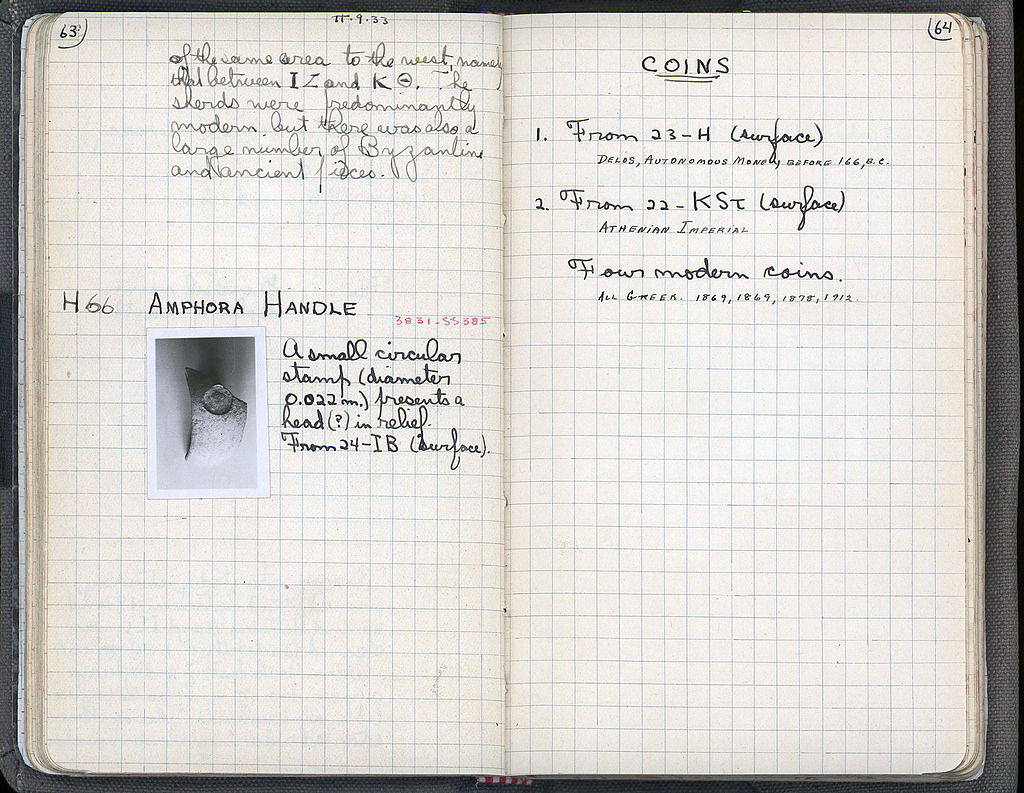 63
ΠΗ-9-33
of the same area to the west, namely
that between ΙΖ and ΚΘ. The
sherds were predominantly
modern, but there was also a
large number of Byzantine
and ancient pieces.
H 66 AMPHORA HANDLE
3831-SS385
A small circular
stamp (diameter
0.022 m.) presents a
head (?) in relief.
From 24-ΙΒ (surface).
64
COINS
1. From 23-Η (surface)
DELOS, AUTONOMOUS MONEY, BEFORE 166, B.C.
2. From 22-ΚΣΤ (surface)
ATHENIAN IMPERIAL
Four modern coins.
ALL GREEK. 1869, 1869, 1878, 1912.